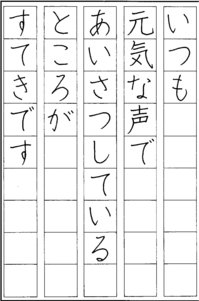 いつも
元気な声で
あいさつしている
ところが
すてきです